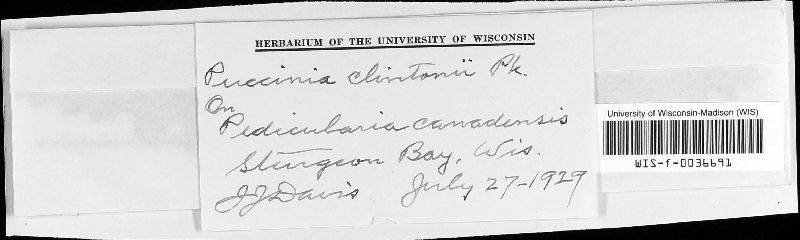 HERBARIUM OF THE UNIVERSITY OF WISCONSIN
Puccinia clintonii Pk.
On
Pedicularia canadensis
Sturgeon Bay, Wis.
JJDavis July 27-1929
University of Wisconsin-Madison (WIS)
WIS-f-0036691